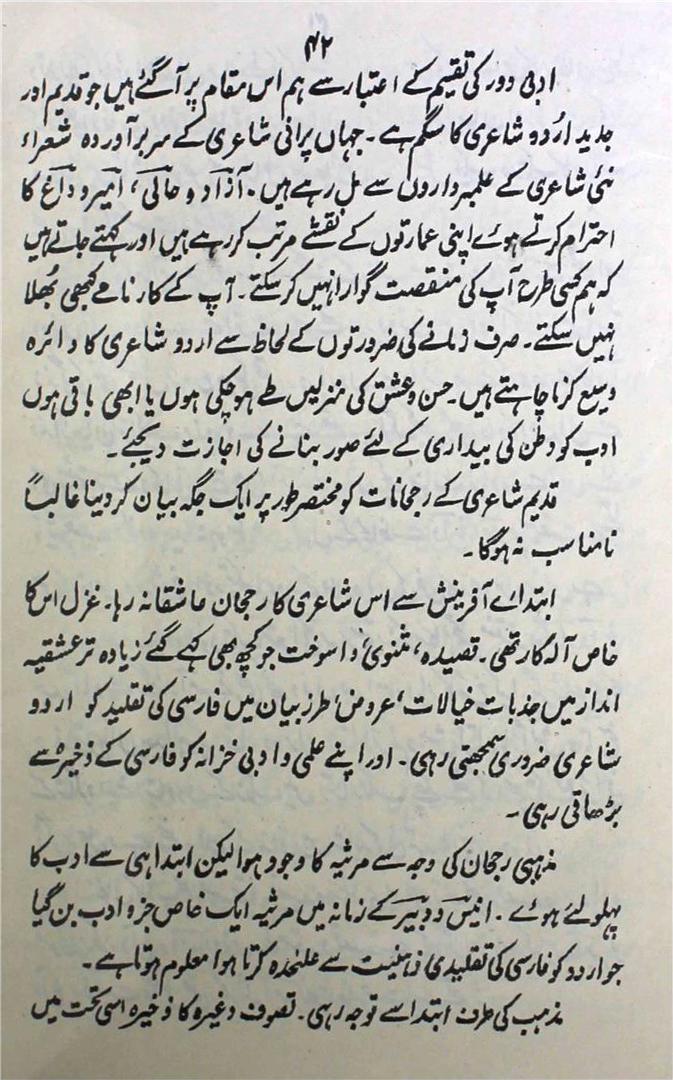 ۴۲
ادبی دور کی تقسیم کے اعتبار سے ہم اس مقام پر آگئے ہیں جو قدیم اور
جدید اردو شاعری کا سنگم ہے۔ جہاں پرانی شاعری کے سربرآوردہ شعراء
نئی شاعری کے علمبرداروں سے مل رہے ہیں۔ آزاد و حالی، امیر و داغ کا
احترام کرتے ہوئے اپنی عمارتوں کے نقشے مرتب کر رہے ہیں اور کہتے جاتے ہیں
کہ ہم کسی طرح آپ کی منقصت گوارا نہیں کر سکتے۔ آپ کے کارنامے کبھی بھلا
نہیں سکتے۔ صرف زمانے کی ضرورتوں کے لحاظ سے اردو شاعری کا دائرہ
وسیع کرنا چاہتے ہیں۔ حسن و عشق کی منزلیں طے ہوچکی ہوں یا ابھی باقی ہوں
ادب کو وطن کی بیداری کے لئے صور بنانے کی اجازت دیجئے۔
قدیم شاعری کے رجحانات کو مختصر طور پر ایک جگہ بیان کر دینا غالباً
نامناسب نہ ہوگا۔
ابتدائے آفرینش سے اس شاعری کا رجحان عاشقانہ رہا۔ غزل اس کا
خاص آلہ کار تھی۔ قصیدہ، مثنوی، واسوخت جو کچھ بھی کہے گئے زیادہ تر عشقیہ
انداز میں جذبات خیالات، عروض، طرز بیان میں فارسی کی تقلید کو اردو
شاعری ضروری سمجھتی رہی۔ اور اپنے علمی و ادبی خزانہ کو فارسی کے ذخیرہ سے
بڑھاتی رہی۔
مذہبی رجحان کی وجہ سے مرثیہ کا وجود ہوا لیکن ابتدا ہی سے ادب کا
پہلو لئے ہوئے۔ انیس و دبیر کے زمانہ میں مرثیہ ایک خاص جزو ادب بن گیا
جو اردو کو فارسی کی تقلیدی ذہنیت سے علٰحدہ کرتا ہوا معلوم ہوتا ہے۔
مذہب کی طرف ابتدا سے توجہ رہی۔ تصوف وغیرہ کا ذخیرہ اسی تحت میں